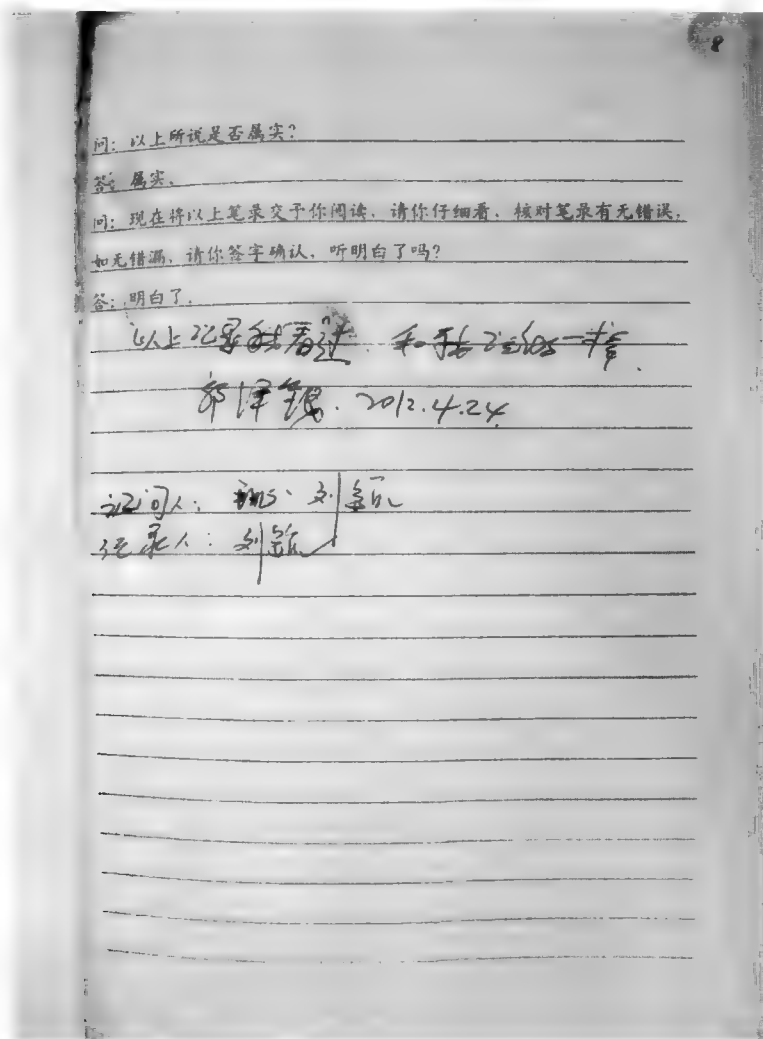 8
问：以上所说是否属实？
答：属实。
问：现在将以上笔录交于你阅读，请你仔细看，核对笔录有无错误，
如无错漏，请你签字确认，听明白了吗？
答：明白了。
以上记录我看过，和我说的一样。
2012.4.24
询问人： 刘
记录人：刘